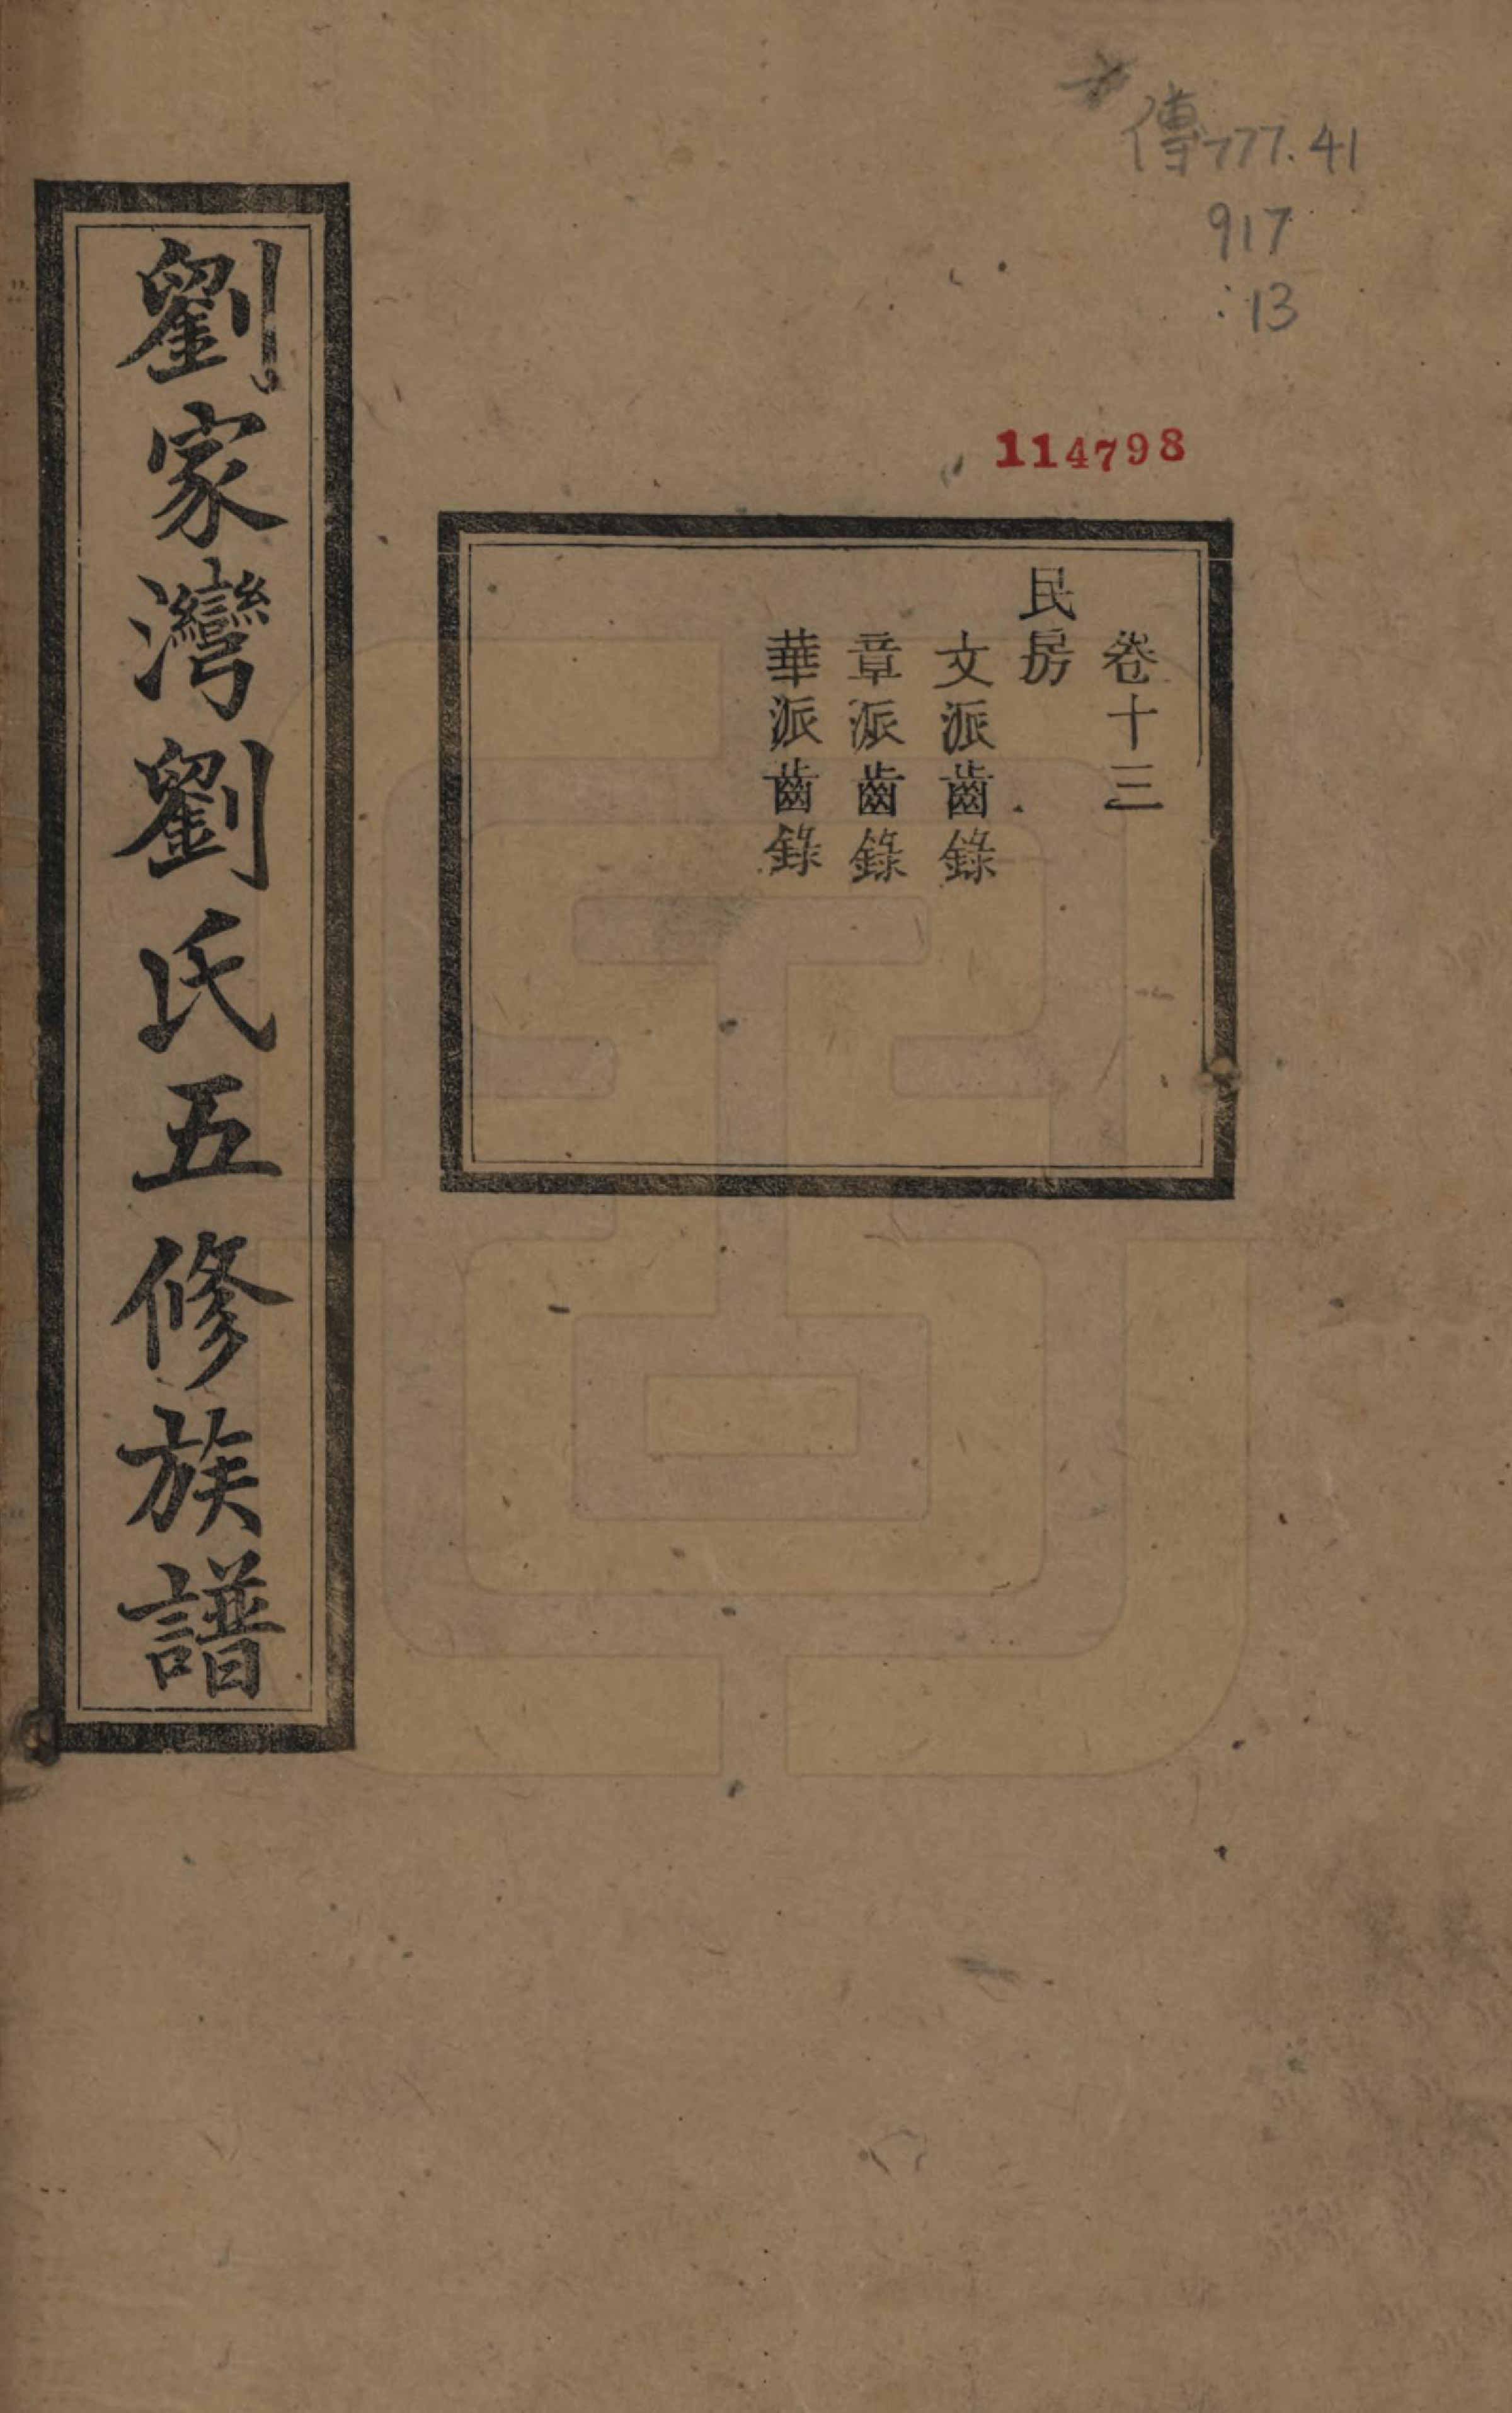 傳777.41
917
:13
114798
卷十三
民房
文派齒錄
章派齒錄
華派齒錄
劉家灣劉氏五修族譜